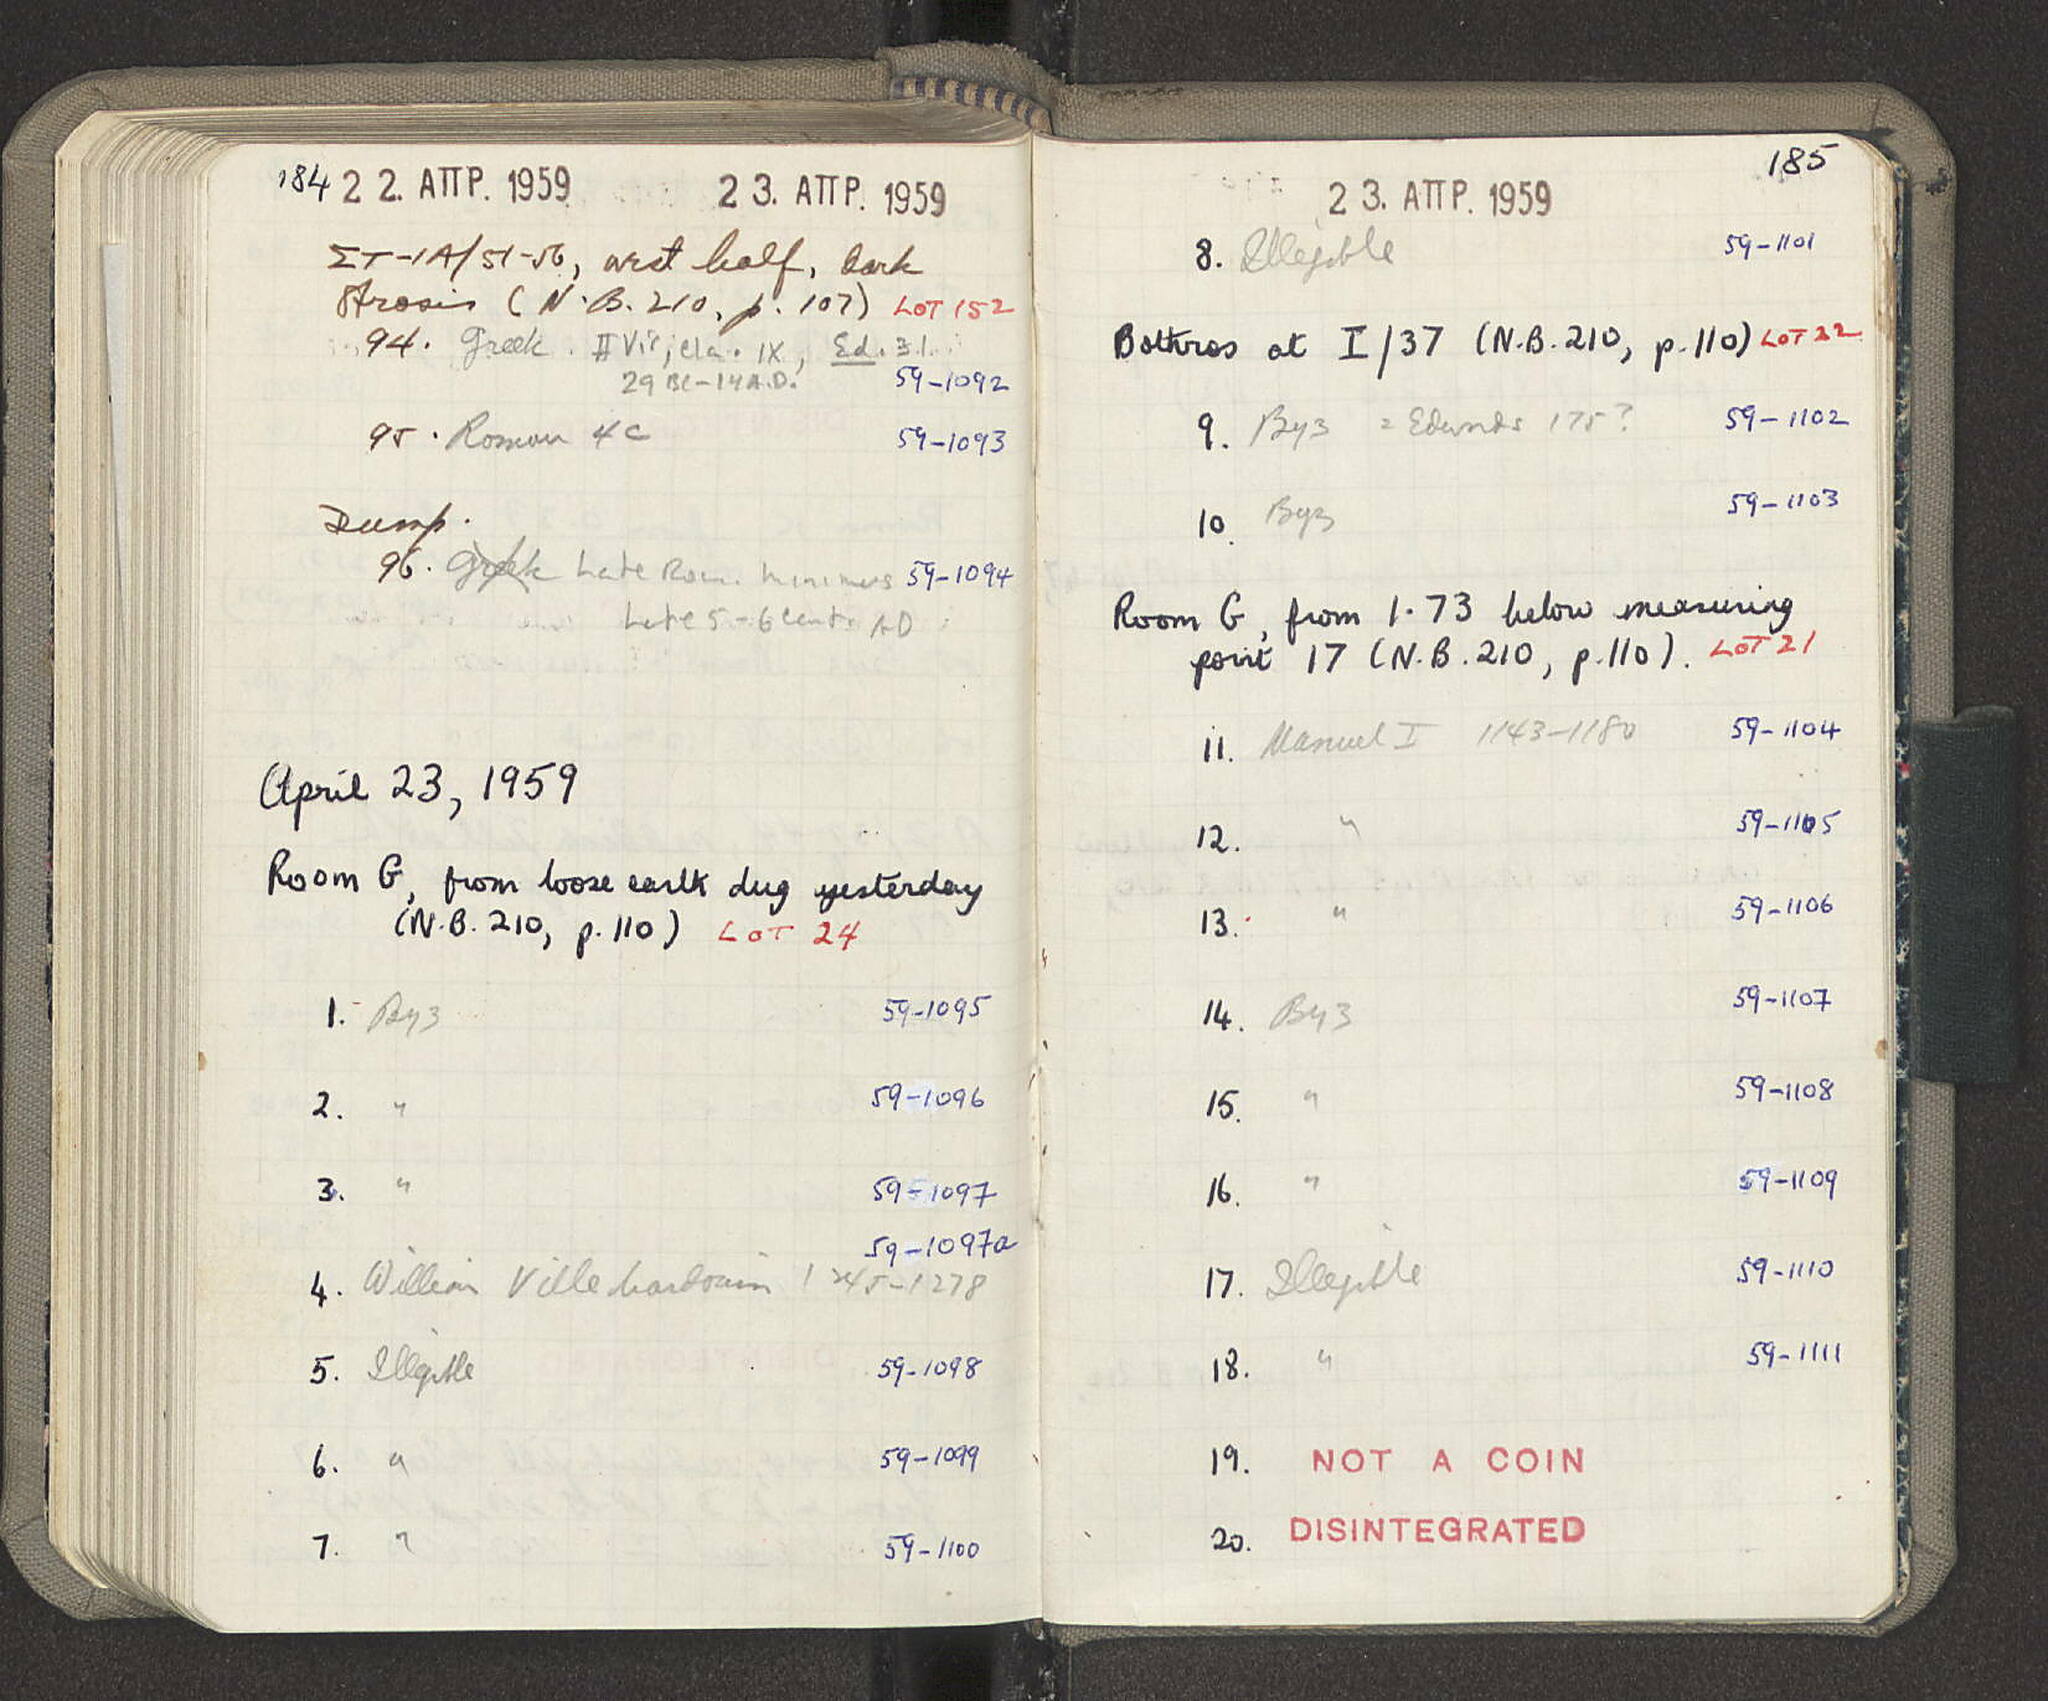 184 22. ΑΠΡ. 1959 23. ΑΠΡ. 1959
ΣΤ-1A/51-56, west half, dark
Strosis (N.B. 210, p. 107) LOT 152
94. Greek. II Vir; Cla. IX, Ed. 31.
29 BC-14 A.D. 59-1092
95. Roman 4 C 59-1093
Dump.
96. Greek Late Rom. minimus 59-1094
Late 5-6 cent. AD
April 23, 1959
Room G, from loose earth dug yesterday
(N.B. 210, p. 110) LOT 24
1. Byz 59-1095
2. " 59-1096
3. " 59-1097
59-1097a
4. William Villehardouin 1245-1278
5. Illegible 59-1098
6. " 59-1099
7. " 59-1100
185
23. ΑΠΡ. 1959
8. Illegible 59-1101
Bothros at I/37 (N.B. 210, p. 110) LOT 22
9. Byz = Edwards 175? 59-1102
10. Byz 59-1103
Room G, from 1.73 below measuring
point 17 (N.B. 210, p. 110). LOT 21
11. Manuel I 1143-1180 59-1104
12. " 59-1105
13. " 59-1106
14. Byz 59-1107
15. " 59-1108
16. " 59-1109
17. Illegible 59-1110
18. " 59-1111
19. NOT A COIN
20. DISINTEGRATED